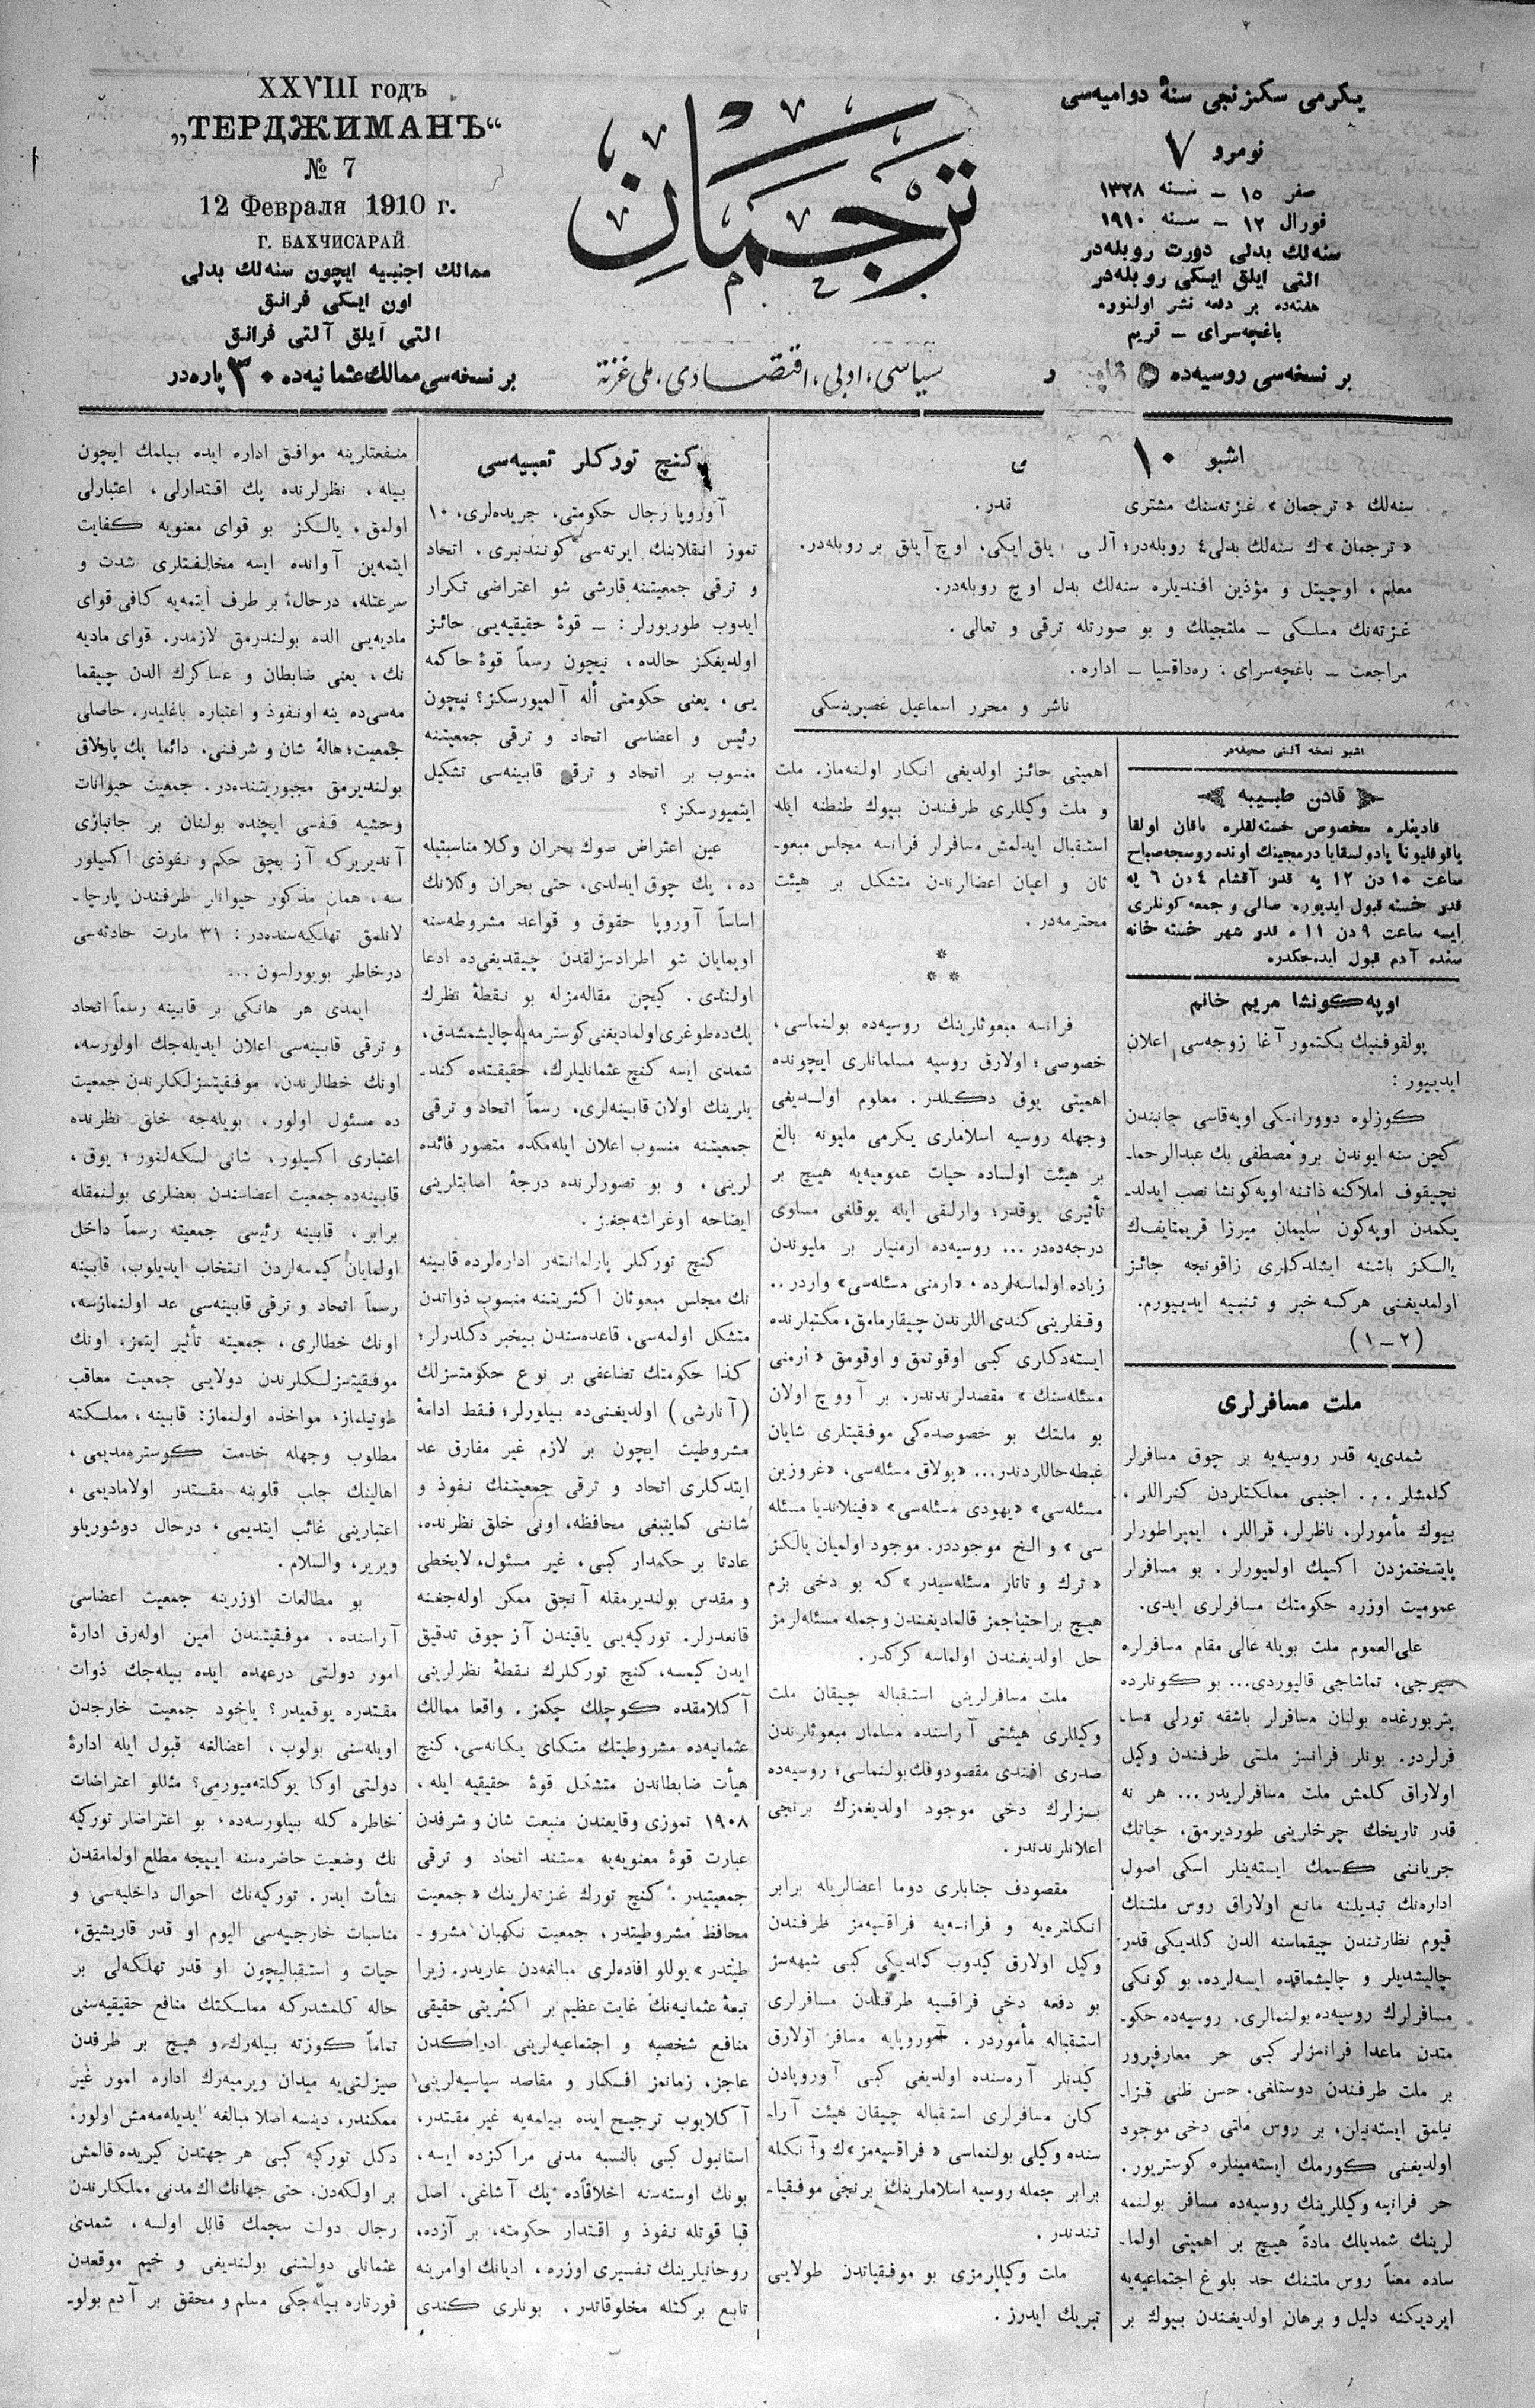 XXVIII годъ
„ТЕРДЖИМАНЪ“
№ 7
12 Февраля 1910 г.
Г. БАХЧИСАРАЙ
ممالك اجنبیه ایچون سنه‌لك بدلی
اون ایكی فرانق
التی آیلق آلتی فرانق
بر نسخه‌سی ممالك عثمانیه‌ده ۳۰ پاره‌در
ترجمان
سیاسی، ادبی، اقتصادی، ملی غزته
یكرمی سكزنجی سنهٔ دوامیه‌سی
نومرو ۷
صفر ۱۵ – سنه ۱۳۲۸
فورال ۱۲ – سنه ۱۹۱۰
سنه‌لك بدلی دورت روبله‌در
التی ایلق ایكی روبله‌در
هفته‌ده بر دفعه نشر اولنور
باغچه‌سرای – قریم
بر نسخه‌سی روسیه‌ده ۵
اشبو ۱۰
سنه‌لك «ترجمان» غزته‌سنك مشتری قدر.
«ترجمان» ك سنه‌لك بدلی ٤ روبله‌در؛ یلق ایكی، اوچ آیلق بر روبله‌در.
معلم، اوچیتل و مؤذین افندیلره سنه‌لك بدل اوچ روبله‌در.
غزته‌نك مسلكی – ملتجیلك و بو صورتله ترقی و تعالی.
مراجعت – باغچه‌سرای: ره‌داقسیا – اداره.
ناشر و محرر اسماعیل غصپرینسكی
اشبو نسخه آلتی صحیفه‌در
قادن طبیبه
قادینلره مخصوص خسته‌لقلره باقان اولغا
ساعت ۱۰ دن ۱۲ یه قدر آقشام ٤ دن ٦ یه
قدر خسته قبول ایدیور. صالی و جمعه كونلری
ایسه ساعت ۹ دن ۱۱ ه قدر شهر خسته خانه
سنده آدم قبول ایده‌جكدر.
اوپه‌كونشا مریم خانم
پولقوفنیك بكتمور آغا زوجه‌سی اعلان
ایدییور:
كوزلوه دوورانیكی اوپه‌قاسی جانبندن
كچن سنه ایوندن برو مصطفی بك عبدالرحما-
نچیقوف املاكنه ذاتنه اوپه‌كونشا نصب ایدلد-
یكمدن اوپه‌كون سلیمان میرزا قریمتایف‌ك
یالكز باشنه ایشلدكلری زاقونجه جائز
اولمدیغنی هركسه خبر و تنبیه ایدییورم.
(۲–۱)
ملت مسافرلری
شمدی‌یه قدر روسیه‌یه بر چوق مسافرلر
كلمشلر... اجنبی مملكتلردن كنراللر،
بیوك مأمورلر، ناظرلر، قراللر، ایمپراطورلر
پایتختمزدن اكسیك اولمیورلر. بو مسافرلر
عمومیت اوزره حكومتك مسافرلری ایدی.
علی‌العموم ملت بویله عالی مقام مسافرلره
سیرجی، تماشاجی قالیوردی... بو كونلرده
پتربورغده بولنان مسافرلر باشقه تورلی مسا-
فرلردر. بونلر فرانسز ملتی طرفندن وكیل
اولاراق كلمش ملت مسافرلریدر... هر نه
قدر تاریخك چرخلرینی طوردیرمق، حیاتك
جریاننی كسمك ایسته‌ینلر اسكی اصول
اداره‌نك تبدیلنه مانع اولاراق روس ملتنك
قیوم نظارتندن چیقماسنه الدن كلدیكی قدر
چالیشدیلر و چالیشماقده ایسه‌لرده، بو كونكی
مسافرلرك روسیه‌ده بولنمالری. روسیه‌ده حكو-
متدن ماعدا فرانسزلر كبی حر معارفپرور
بر ملت طرفندن دوستلغی، حسن ظنی قزا-
نیلمق ایسته‌نیلن، بر روس ملتی دخی موجود
اولدیغنی كورمك ایسته‌مینلره كوستریور.
حر فرانسه وكیللرینك روسیه‌ده مسافر بولنمه
لرینك شمدیلك مادةً هیچ بر اهمیتی اولما-
ساده معناً روس ملتنك حد بلوغ اجتماعیه‌یه
ایردیكنه دلیل و برهان اولدیغندن بیوك بر
اهمیتی حائز اولدیغی انكار اولنه‌ماز. ملت
و ملت وكیللری طرفندن بیوك طنطنه ایله
استقبال ایدلمش مسافرلر فرانسه مجلس مبعو-
ثان و اعیان اعضالرندن متشكل بر هیئت
محترمه‌در.
* * *
فرانسه مبعوثلرینك روسیه‌ده بولنماسی،
خصوصی؛ اولارق روسیه مسلمانلری ایچونده
اهمیتی یوق دكلدر. معلوم اولدیغی
وجهله روسیه اسلاملری یكرمی ملیونه بالغ
بر هیئت اولساده حیات عمومیه‌یه هیچ بر
تأثیری یوقدر؛ وارلقی ایله یوقلغی مساوی
درجه‌ده‌در... روسیه‌ده ارمنیلر بر ملیوندن
زیاده اولماسه‌لرده، «ارمنی مسئله‌سی» واردر..
وقفلرینی كندی اللرندن چیقارمامق، مكتبلرنده
ایسته‌دكلری كبی اوقوتمق و اوقومق «ارمنی
مسئله‌سنك» مقصدلرندندر. بر آووچ اولان
بو ملتك بو خصوصده‌كی موفقیتلری شایان
غبطه حاللردندر... «پولاق مسئله‌سی، «غروزین
مسئله‌سی» «یهودی مسئله‌سی» «فینلاندیا مسئله
سی» و الخ موجوددر. موجود اولمیان یالكز
«ترك و تاتار مسئله‌سیدر» كه بو دخی بزم
هیچ بر احتیاجمز قالمادیغندن و جمله مسئله‌لرمز
حل اولدیغندن اولماسه كركدر.
ملت مسافرلرینی استقباله چیقان ملت
وكیللری هیئتی آراسنده مسلمان مبعوثلرندن
صدری افندی مقصودوفك بولنماسی؛ روسیه‌ده
بزلرك دخی موجود اولدیغمزك برنجی
اعلانلرندندر.
مقصودف جنابلری دوما اعضالریله برابر
انكلتره‌یه و فرانسه‌یه فراقسیه‌مز طرفندن
وكیل اولارق كیدوب كلدیكی كبی شبهه‌سز
بو دفعه دخی فراقسیه طرفندن مسافرلری
استقباله مأموردر. آوروپایه مسافر اولارق
كیدنلر آره‌سنده اولدیغی كبی آوروپادن
كلن مسافرلری استقباله چیقان هیئت آرا-
سنده وكیلی بولنماسی «فراقسیه‌مز» ك وآنكله
برابر جمله روسیه اسلاملرینك برنجی موفقیا-
تندندر.
ملت وكیللرمزی بو موفقیاتدن طولایی
تبریك ایدرز.
كنچ توركلر تعبیه‌سی
آوروپا رجال حكومتی، جریده‌لری، ۱۰
تموز انقلابنك ایرته‌سی كونندنبری، اتحاد
و ترقی جمعیتنه قارشی شو اعتراضی تكرار
ایدوب طوریورلر: – قوهٔ حقیقیه‌یی حائز
اولدیغكز حالده، نیچون رسماً قوهٔ حاكمه
یی، یعنی حكومتی أله آلمیورسكز؟ نیچون
رئیس و اعضاسی اتحاد و ترقی جمعیتنه
منسوب بر اتحاد و ترقی قابینه‌سی تشكیل
ایتمیورسكز؟
عین اعتراض صوك بحران وكلا مناسبتیله
ده، پك چوق ایدلدی، حتی بحران وكلانك
اساساً آوروپا حقوق و قواعد مشروطه‌سنه
اویمایان شو اطرادسزلقدن چیقدیغی‌ده ادعا
اولندی. كچن مقاله‌مزله بو نقطهٔ نظرك
پك‌ده طوغری اولمادیغنی كوسترمه‌یه چالیشمشدق،
شمدی ایسه كنچ عثمانلیلرك، حقیقتده كند-
یلرینك اولان قابینه‌لری، رسماً اتحاد و ترقی
جمعیتنه منسوب اعلان ایله‌مكده متصور فائده
لرینی، و بو تصورلرنده درجهٔ اصابتلرینی
ایضاحه اوغراشه‌جغز.
كنچ توركلر پارلمانته‌ر اداره‌لرده قابینه
نك مجلس مبعوثان اكثریتنه منسوب ذواتدن
متشكل اولمه‌سی، قاعده‌سندن بیخبر دكلدرلر؛
كذا حكومتك تضاعفی بر نوع حكومتسزلك
(آنارشی) اولدیغنی‌ده بیلورلر؛ فقط ادامهٔ
مشروطیت ایچون بر لازم غیر مفارق عد
ایتدكلری اتحاد و ترقی جمعیتنك نفوذ و
شاننی كماینبغی محافظه، اونی خلق نظرنده،
عادتا بر حكمدار كبی، غیر مسئول، لایخطی
و مقدس بولندیرمقله آنجق ممكن اوله‌جغنه
قانعدرلر. توركیه‌یی یاقیندن آز چوق تدقیق
ایدن كیمسه، كنچ توركلرك نقطهٔ نظرلرینی
آكلامقده كوچلك چكمز. واقعا ممالك
عثمانیه‌ده مشروطیتك متكای یكانه‌سی، كنچ
هیأت ضابطاندن متشكل قوهٔ حقیقیه ایله،
۱۹۰۸ تموزی وقایعندن منبعث شان و شرفدن
عبارت قوهٔ معنویه‌یه مستند اتحاد و ترقی
جمعیتیدر. كنچ تورك غزته‌لرینك «جمعیت
محافظ مشروطیتدر، جمعیت نكهبان مشرو-
طیتدر» یوللو افاده‌لری مبالغه‌دن عاریدر. زیرا
تبعهٔ عثمانیه‌نك غایت عظیم بر اكثریتی حقیقی
منافع شخصیه و اجتماعیه‌لرینی ادراكدن
عاجز، زمانمز افكار و مقاصد سیاسیه‌لرینی
آكلایوب ترجیح ایده بیلمه‌یه غیر مقتدر،
استانبول كبی بالنسبه مدنی مراكزده ایسه،
بونك اوسته‌سنه اخلاقاًده پك آشاغی، اصل
قبا قوتله نفوذ و اقتدار حكومته، بر آزده،
روحانیلرینك تفسیری اوزره، ادیانك اوامرینه
تابع بر كتله مخلوقاتدر. بونلری كندی
منفعتلرینه موافق اداره ایده بیلمك ایچون
بیله، نظرلرنده پك اقتدارلی، اعتبارلی
اولمق، یالكز بو قوای معنویه كفایت
ایتمه‌ین آوانده ایسه مخالفتلری شدت و
سرعتله، درحال، بر طرف ایتمه‌یه كافی قوای
مادیه‌یی الده بولندرمق لازمدر. قوای مادیه
نك، یعنی ضابطان و عساكرك الدن چیقما
مه‌سی‌ده ینه اونفوذ و اعتباره باغلیدر. حاصلی
جمعیت؛ هالهٔ شان و شرفنی، دائما پك پارلاق
بولندیرمق مجبوریتنده‌در. جمعیت حیوانات
وحشیه قفسی ایچنده بولنان بر جانبازی
آندیریركه آز بچق حكم و نفوذی اكسیلور
سه، همان مذكور حیوانلر طرفندن پارچا-
لانلمق تهلكه‌سنده‌در: ۳۱ مارت حادثه‌سی
درخاطر بویورلسون...
ایمدی هر هانكی بر قابینه رسماً اتحاد
و ترقی قابینه‌سی اعلان ایدیله‌جك اولورسه،
اونك خطالرندن، موفقیتسزلكلرندن جمعیت
ده مسئول اولور، بویله‌جه خلق نظرنده
اعتباری اكسیلور، شانی لكه‌لنور؛ یوق،
قابینه‌ده جمعیت اعضاسندن بعضلری بولنمقله
برابر، قابینه رئیسی جمعیته رسماً داخل
اولمایان كیمسه‌لردن انتخاب ایدیلوب، قابینه
رسماً اتحاد و ترقی قابینه‌سی عد اولنمازسه،
اونك خطالری، جمعیته تأثیر ایتمز، اونك
موفقیتسزلكلرندن دولایی جمعیت معاقب
طوتیلماز، مواخذه اولنماز: قابینه، مملكته
مطلوب وجهله خدمت كوستره‌مدیمی،
اهالینك جلب قلوبنه مقتدر اولامادیمی،
اعتبارینی غائب ایتدیمی، درحال دوشوریلو
ویریر، والسلام.
بو مطالعات اوزرینه جمعیت اعضاسی
آراسنده، موفقیتندن امین اوله‌رق ادارهٔ
امور دولتی درعهده ایده بیله‌جك ذوات
مقتدره یوقمیدر؟ یاخود جمعیت خارجدن
اویله‌سنی بولوب، اعضالغه قبول ایله ادارهٔ
دولتی اوكا یوكلته‌میورمی؟ مثللو اعتراضات
خاطره كله بیلورسه‌ده، بو اعتراضلر توركیه
نك وضعیت حاضره‌سنه اییجه مطلع اولمامقدن
نشأت ایدر. توركیه‌نك احوال داخلیه‌سی و
مناسبات خارجیه‌سی الیوم او قدر قاریشیق،
حیات و استقبالیچون او قدر تهلكه‌لی بر
حاله كلمشدركه مملكتك منافع حقیقیه‌سنی
تماماً كوزته بیله‌رك و هیچ بر طرفدن
صیزلتی‌یه میدان ویرمیه‌رك اداره امور غیر
ممكندر، دینسه اصلا مبالغه ایدیله‌مه‌مش اولور.
دكل توركیه كبی هر جهتدن كیریده قالمش
بر اولكه‌دن، حتی جهانك اك مدنی مملكتلرندن
رجال دولت سچمك قابل اولسه، شمدی
عثمانلی دولتنی بولندیغی وخیم موقعدن
قورتاره بیله‌جكی مسلم و محقق بر آدم بولو-